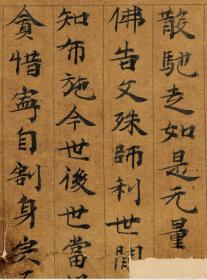 散馳走如是无量
佛告文殊師利世間
知布施今世後世當
貪惜寧自割身宍